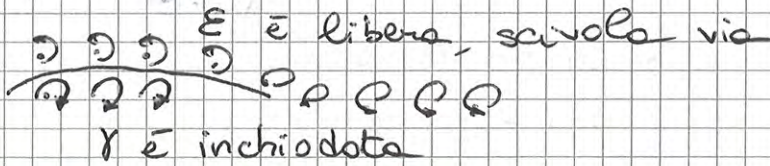 ε è libera, scivola via
γ è inchiodata